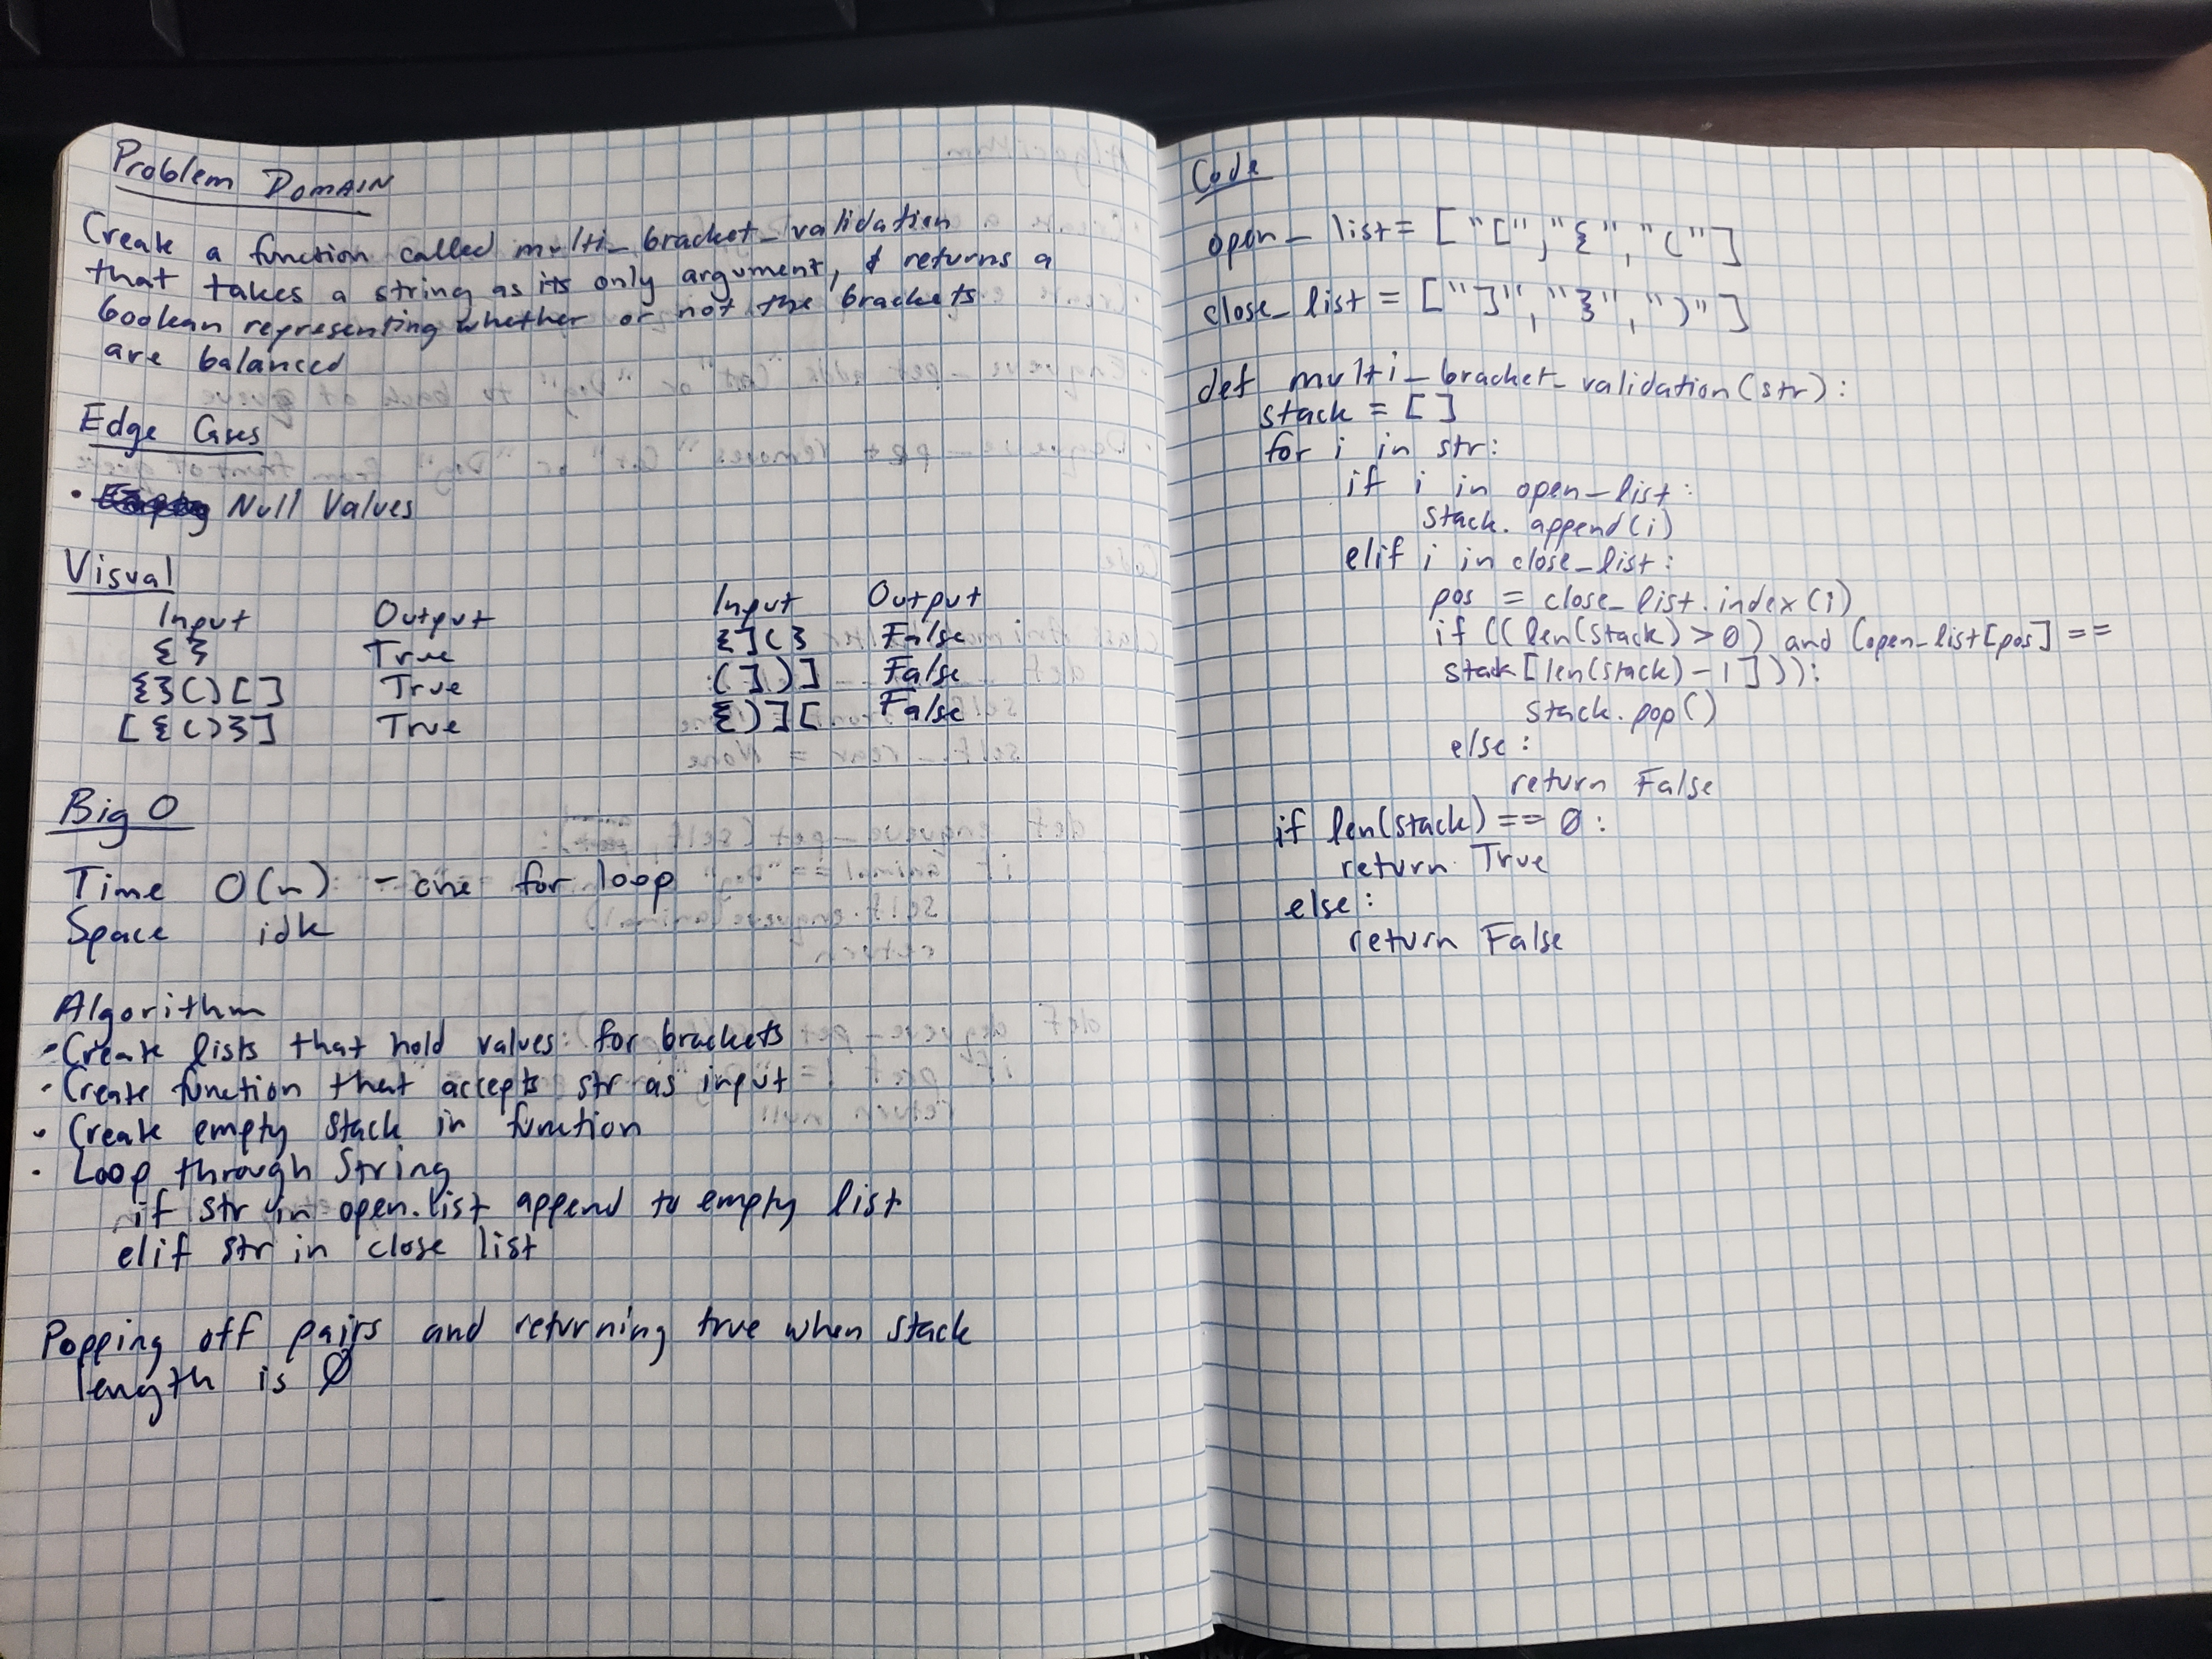 Problem Domain
Create a function called multi_bracket_validation
that takes a string as its only argument, & returns a
boolean representing whether or not the brackets
are balanced
Edge Cases
• Null Values
Visual
Input Output Input Output
{} True {](} False
{}()[] True (])] False
[{()}] True {)][ False
Big O
Time O(n): - one for loop
Space idk
Algorithm
• Create lists that hold values: (for brackets
• Create function that accepts str as input
• Create empty stack in function
• Loop through string
if str in open.list append to empty list
elif str in close list
Popping off pairs and returning true when stack
length is 0
Code
open_list = ["[", "{" "("]
close_list = ["]", "}", ")"]
def multi_bracket_validation(str):
stack = []
for i in str:
if i in open_list:
stack.append(i)
elif i in close_list:
pos = close_list.index(i)
if ((len(stack) > 0) and (open_list[pos] ==
stack[len(stack) - 1])):
stack.pop()
else:
return False
if len(stack) == 0:
return True
else:
return False